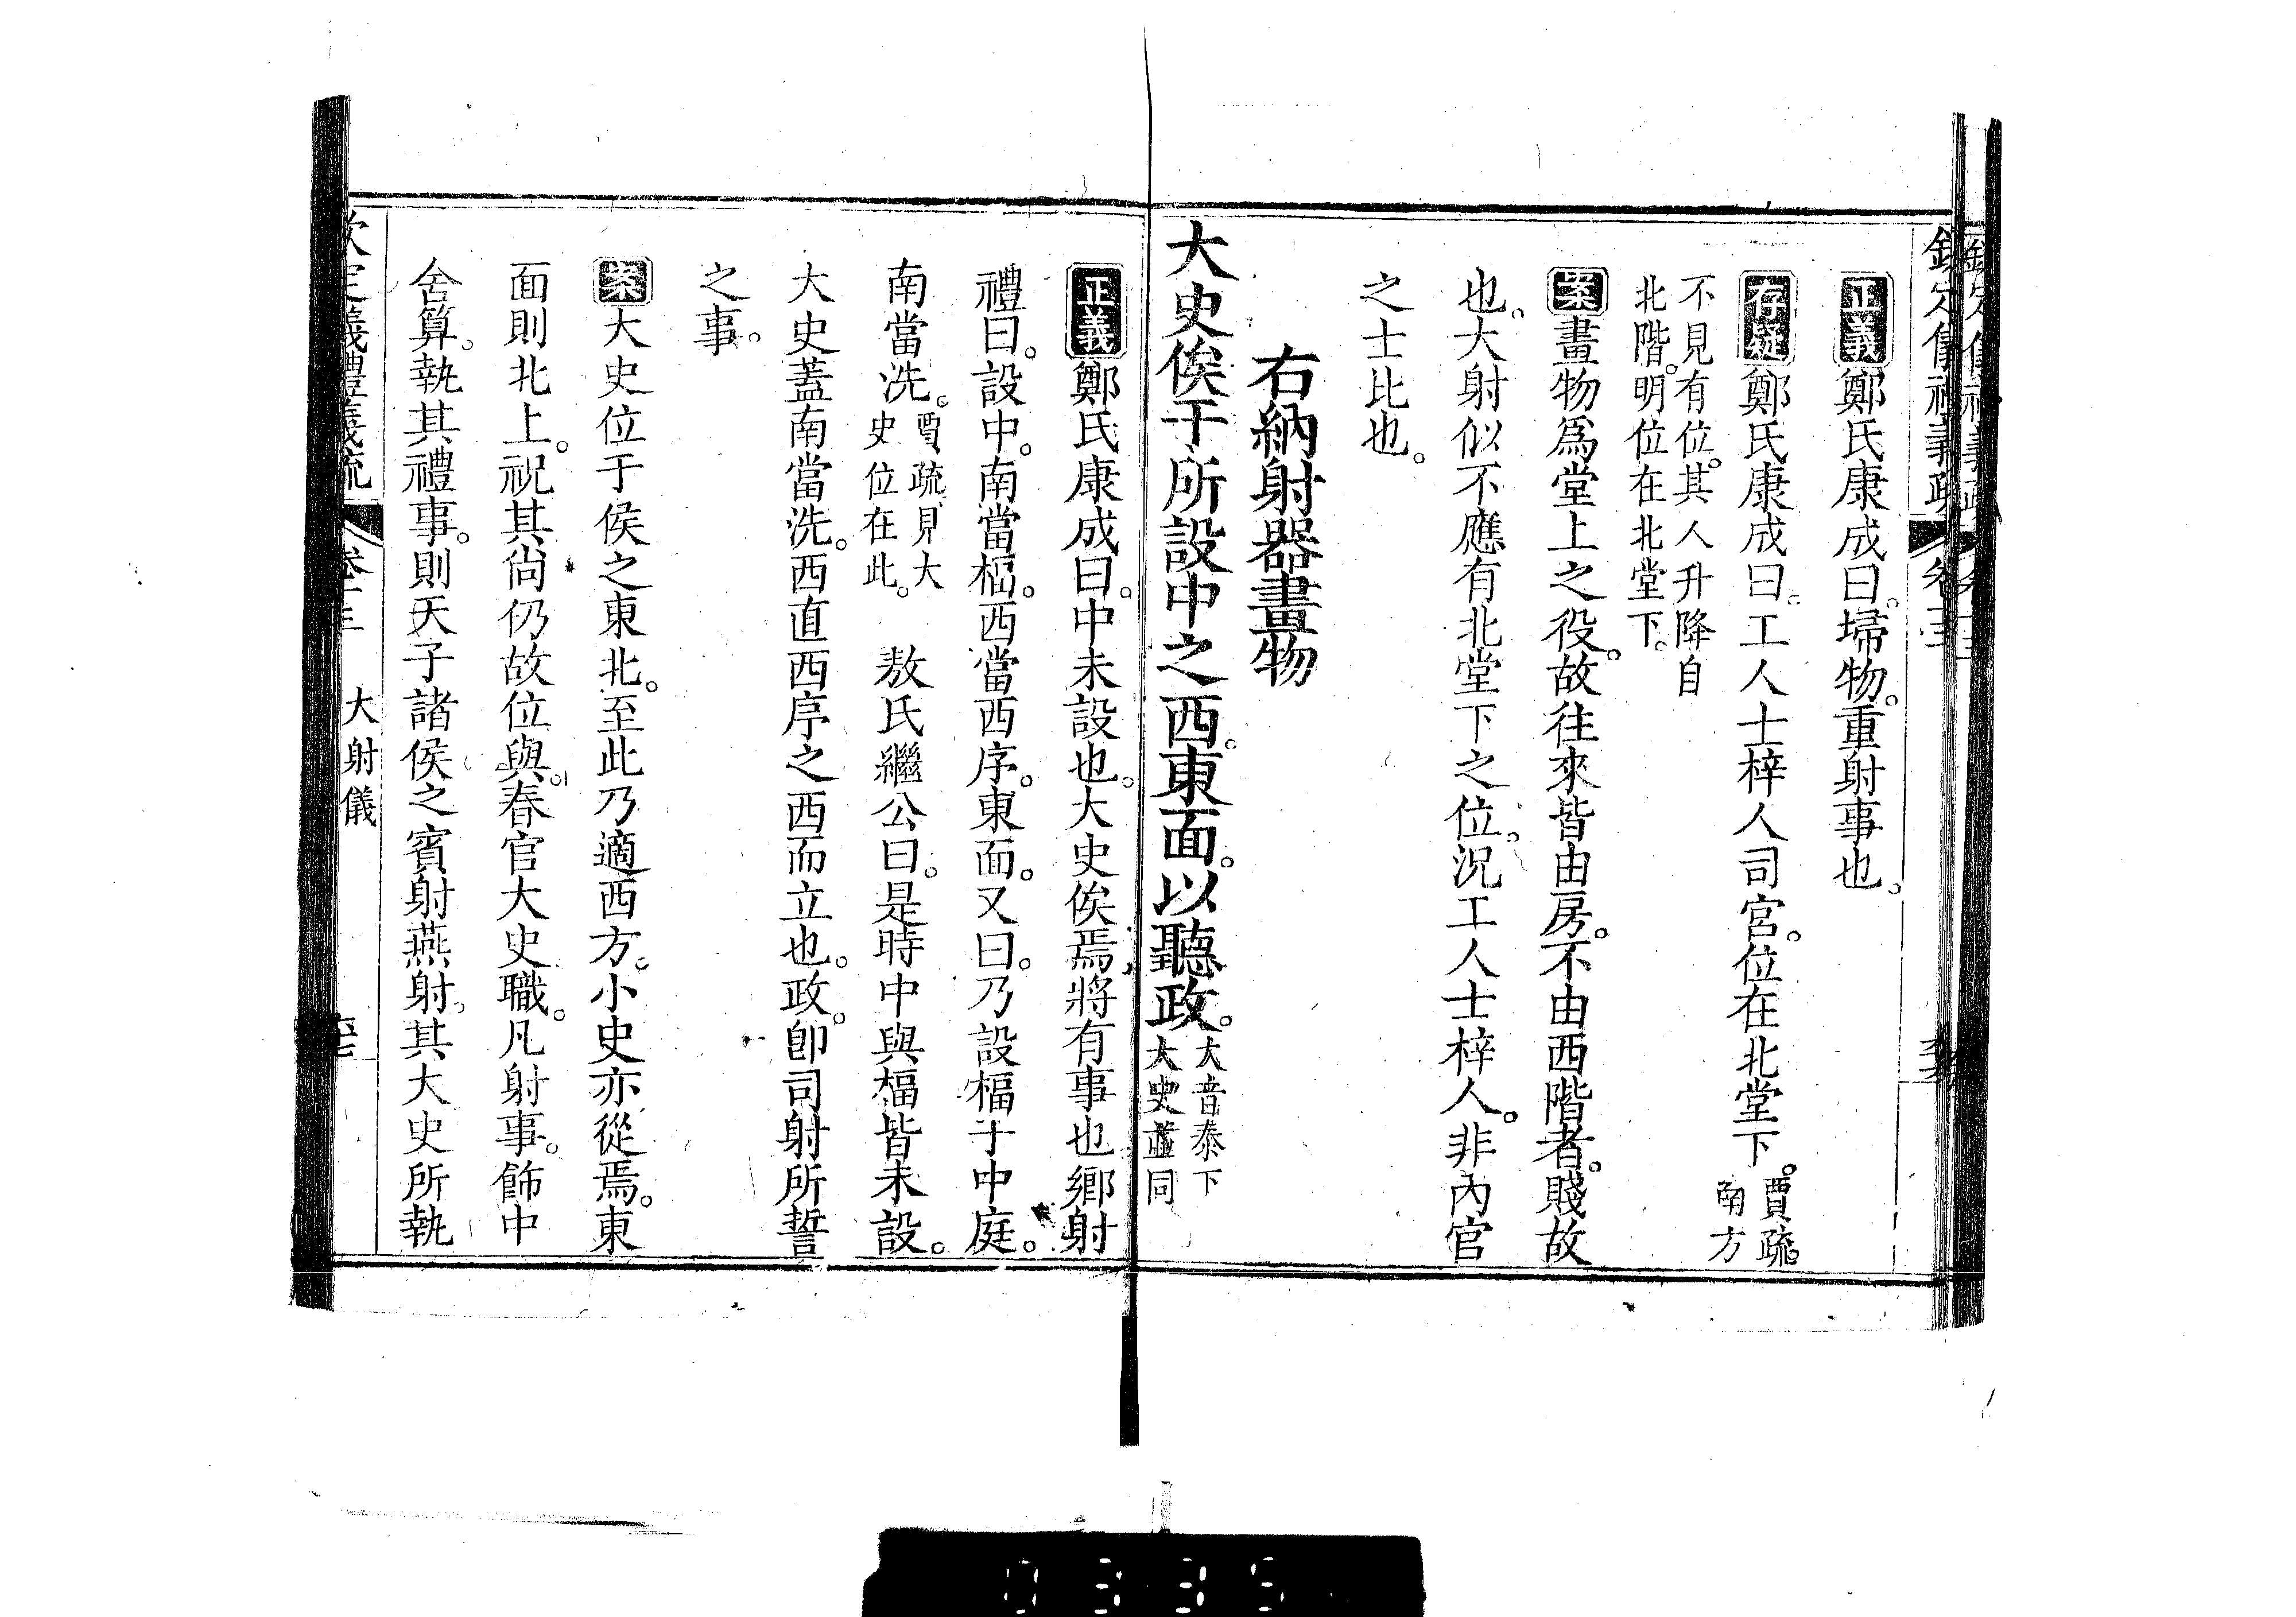 正義鄭氏康成曰。埽物。重射事也。
存疑鄭氏康成曰。工人士梓人司宮。位在北堂下。賈疏。南方
不見有位。其人升降自
北階。明位在北堂下。
案畫物爲堂上之役。故往來皆由房。不由西階者。賤故
也。大射似不應有北堂下之位。況工人士梓人。非內官
之士比也。
右納射器畫物
大史俟于所設中之西。東面。以聽政。大音泰下
大史並同
正義鄭氏康成曰。中未設也。大史俟焉。將有事也。鄉射
禮曰。設中。南當楅。西當西序。東面。又曰。乃設楅于中庭。
南當洗。賈疏。見大
史位在此。
敖氏繼公曰。是時中與楅皆未設。
大史蓋南當洗。西直西序之西而立也。政。卽司射所誓
之事。
案大史位于侯之東北。至此乃適西方。小史亦從焉。東
面則北上。祝其尙仍故位與。春官大史職。凡射事。飾中
舍算。執其禮事。則天子諸侯之賓射燕射。其大史所執
欽定儀禮義疏 卷十三 大射儀
0335